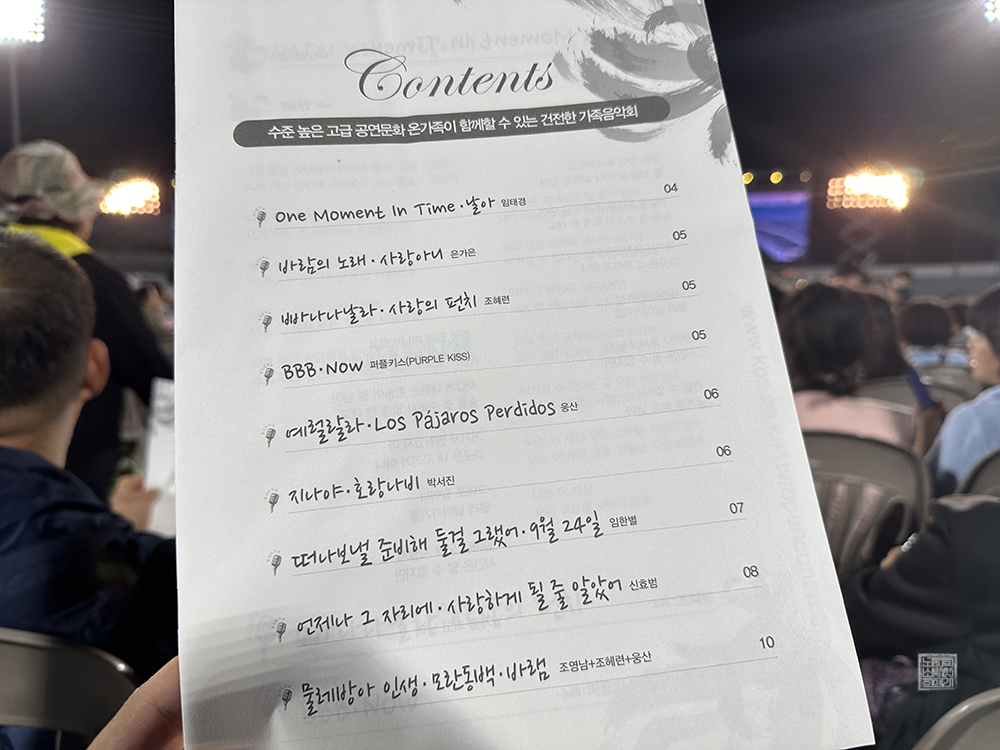 Contents
수준 높은 고급 공연문화 온가족이 함께할 수 있는 건전한 가족음악회
One Moment In Time·날아 임태경 04
바람의 노래·사랑아니 은가은 05
빠나나날라·사랑의 펀치 조혜련 05
BBB·Now 퍼플키스(PURPLE KISS) 05
예럴랄라·Los Pájaros Perdidos 웅산 06
지나야·호랑나비 박서진 06
떠나보낼 준비해 둘걸 그랬어·9월 24일 임한별 07
언제나 그 자리에·사랑하게 될 줄 알았어 신효범 08
물레방아 인생·모란동백·바램 조영남+조혜련+웅산 10